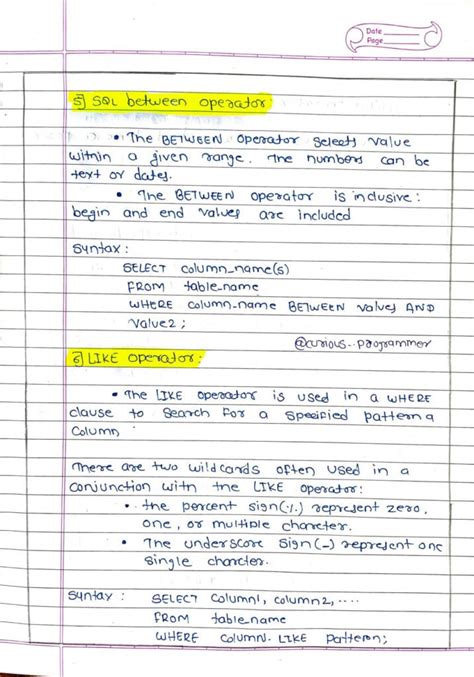 Date
Page
5] SQL between operator:
• The BETWEEN operator selects value
within a given range. The numbers can be
text or dates.
• The BETWEEN operator is inclusive:
begin and end values are included
Syntax:
SELECT column_name(s)
FROM table_name
WHERE column_name BETWEEN value1 AND
value2;
@curious_.programmer
6] LIKE operator:
• The LIKE operator is used in a WHERE
clause to search for a specified pattern a
column
There are two wildcards often used in a
conjunction with the LIKE operator:
• the percent sign (%) represent zero,
one, or multiple charcter.
• The underscore sign (_) represent one
single charcter.
Syntax: SELECT column1, column2, ....
FROM table_name
WHERE columnN LIKE pattern;